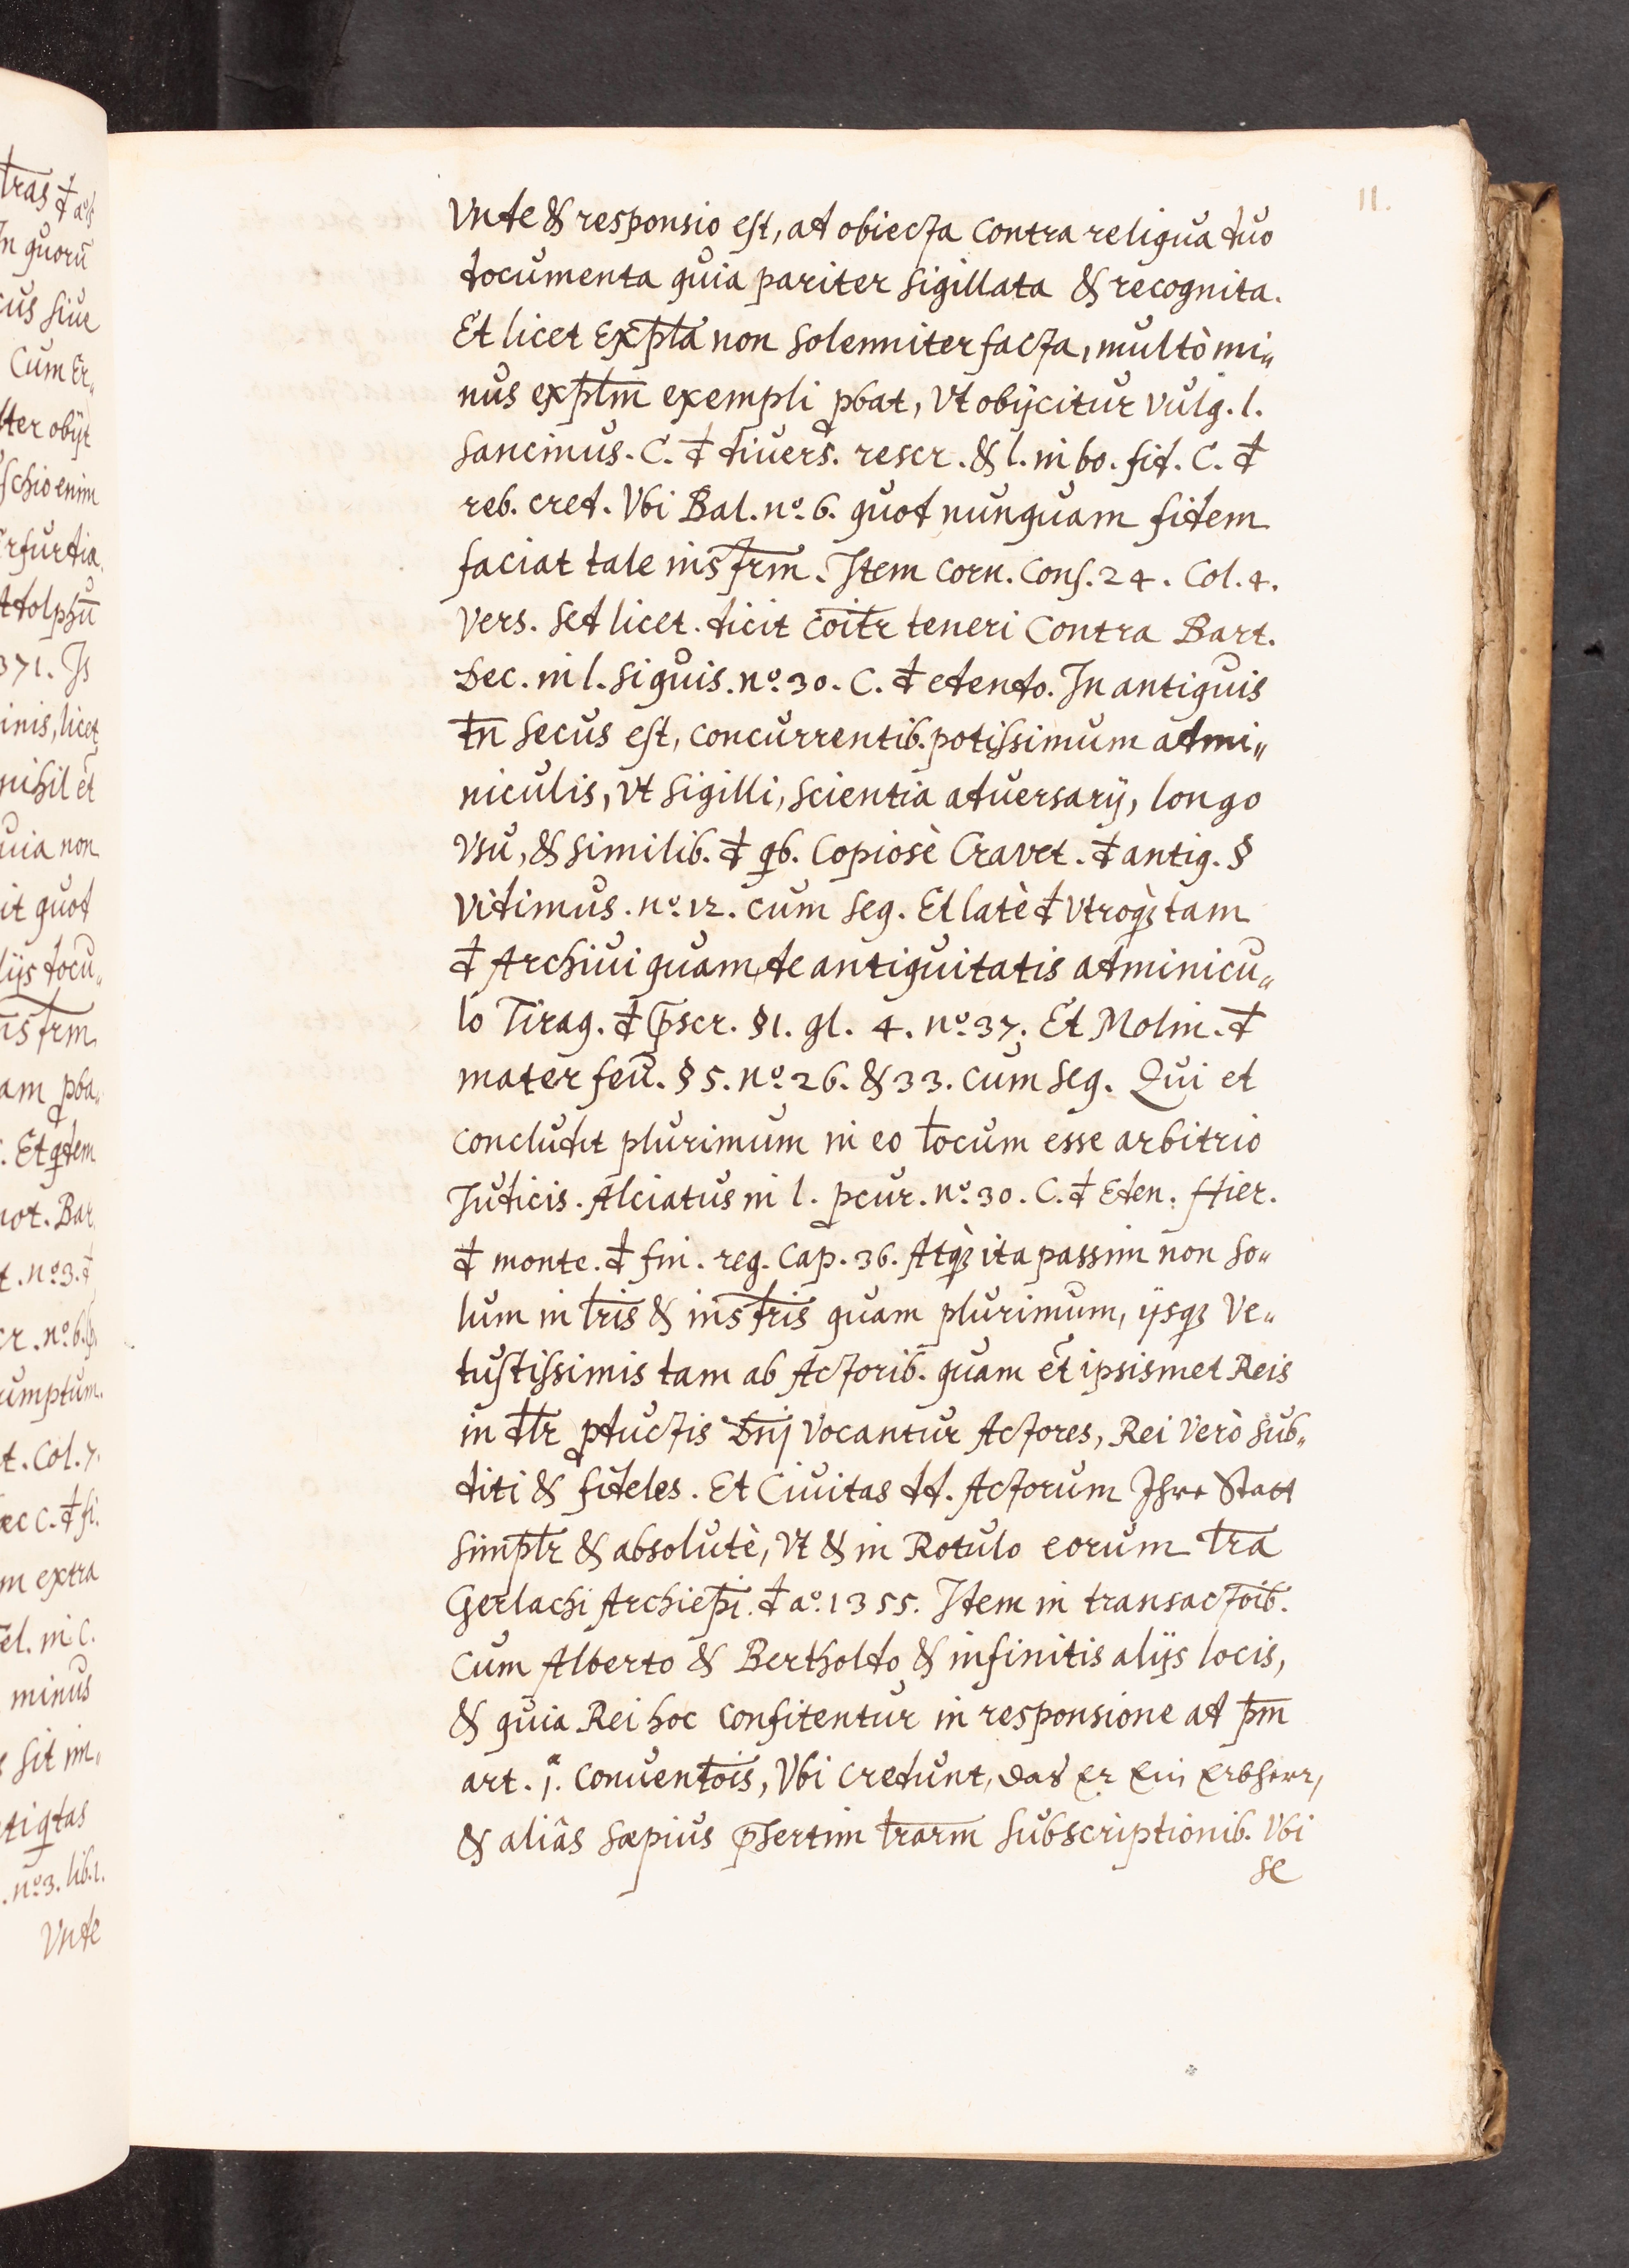 11.
Vnde & responsio est, ad obiecta contra reliqua duo
documenta quia pariter sigillata & recognita.
Et licet exp̄la non solenniter facta, multò mi„
nus exp̄lm exempli pbat, vt obijcitur vulg. l.
sancimus. C. đ divers. rescr. & l. in bo. fid. C. đ
reb. cred. Vbi Bal. nº. 6. quod nunquam fidem
faciat tale instrm̄. Item Corn. Cons. 24. Col. 4.
vers. sed licet. dicit cōitr teneri contra Bart.
Dec. in l. si quis. nº. 30. C. đ edendo. In antiquis
tn̄ secus est, concurrentib. potissimum admi„
niculis, vt sigilli, scientia adversarij, longo
vsu, & similib. đ qb. copiosè Cravet. đ antiq. §
vidimus. nº. 12. cum seq. Et latè đ vtroq; tam
đ Archiui quam de antiquitatis adminicu„
lo Tiraq. đ p̄scr. § 1. gl. 4. nº. 37. Et Molin. đ
mater feū. § 5. nº. 26. & 33. cum seq. Qui et
concludit plurimum in eo locum esse arbitrio
Judicis. Alciatus in l. pcur. nº. 30. C. đ Eden. Hier.
đ monte. đ fin. reg. cap. 36. Atq; ita passim non so„
lum in lr̄is & instr̄is quam plurimum, ijsq; ve„
tustissimis tam ab Actorib. quam et̄ ipsismet Reis
in dlr pductis Dn̄j vocantur Actores, Rei verò sub„
diti & fideles. Et Civitas dd. Actorum Ihre Statt
simplr̄ & absolutè, vt & in Rotulo eorum lr̄a
Gerlachi Archiep̄i. đ aº. 1355. Item in transactōib.
cum Alberto & Bertholdo & infinitis alijs locis,
& quia Rei hoc confitentur in responsione ad p̄m
art. j. conventōis, Vbi credunt, das Er Ein Erbherr,
& aliâs sæpius p̄sertim lr̄arm subscriptionib. Vbi
se